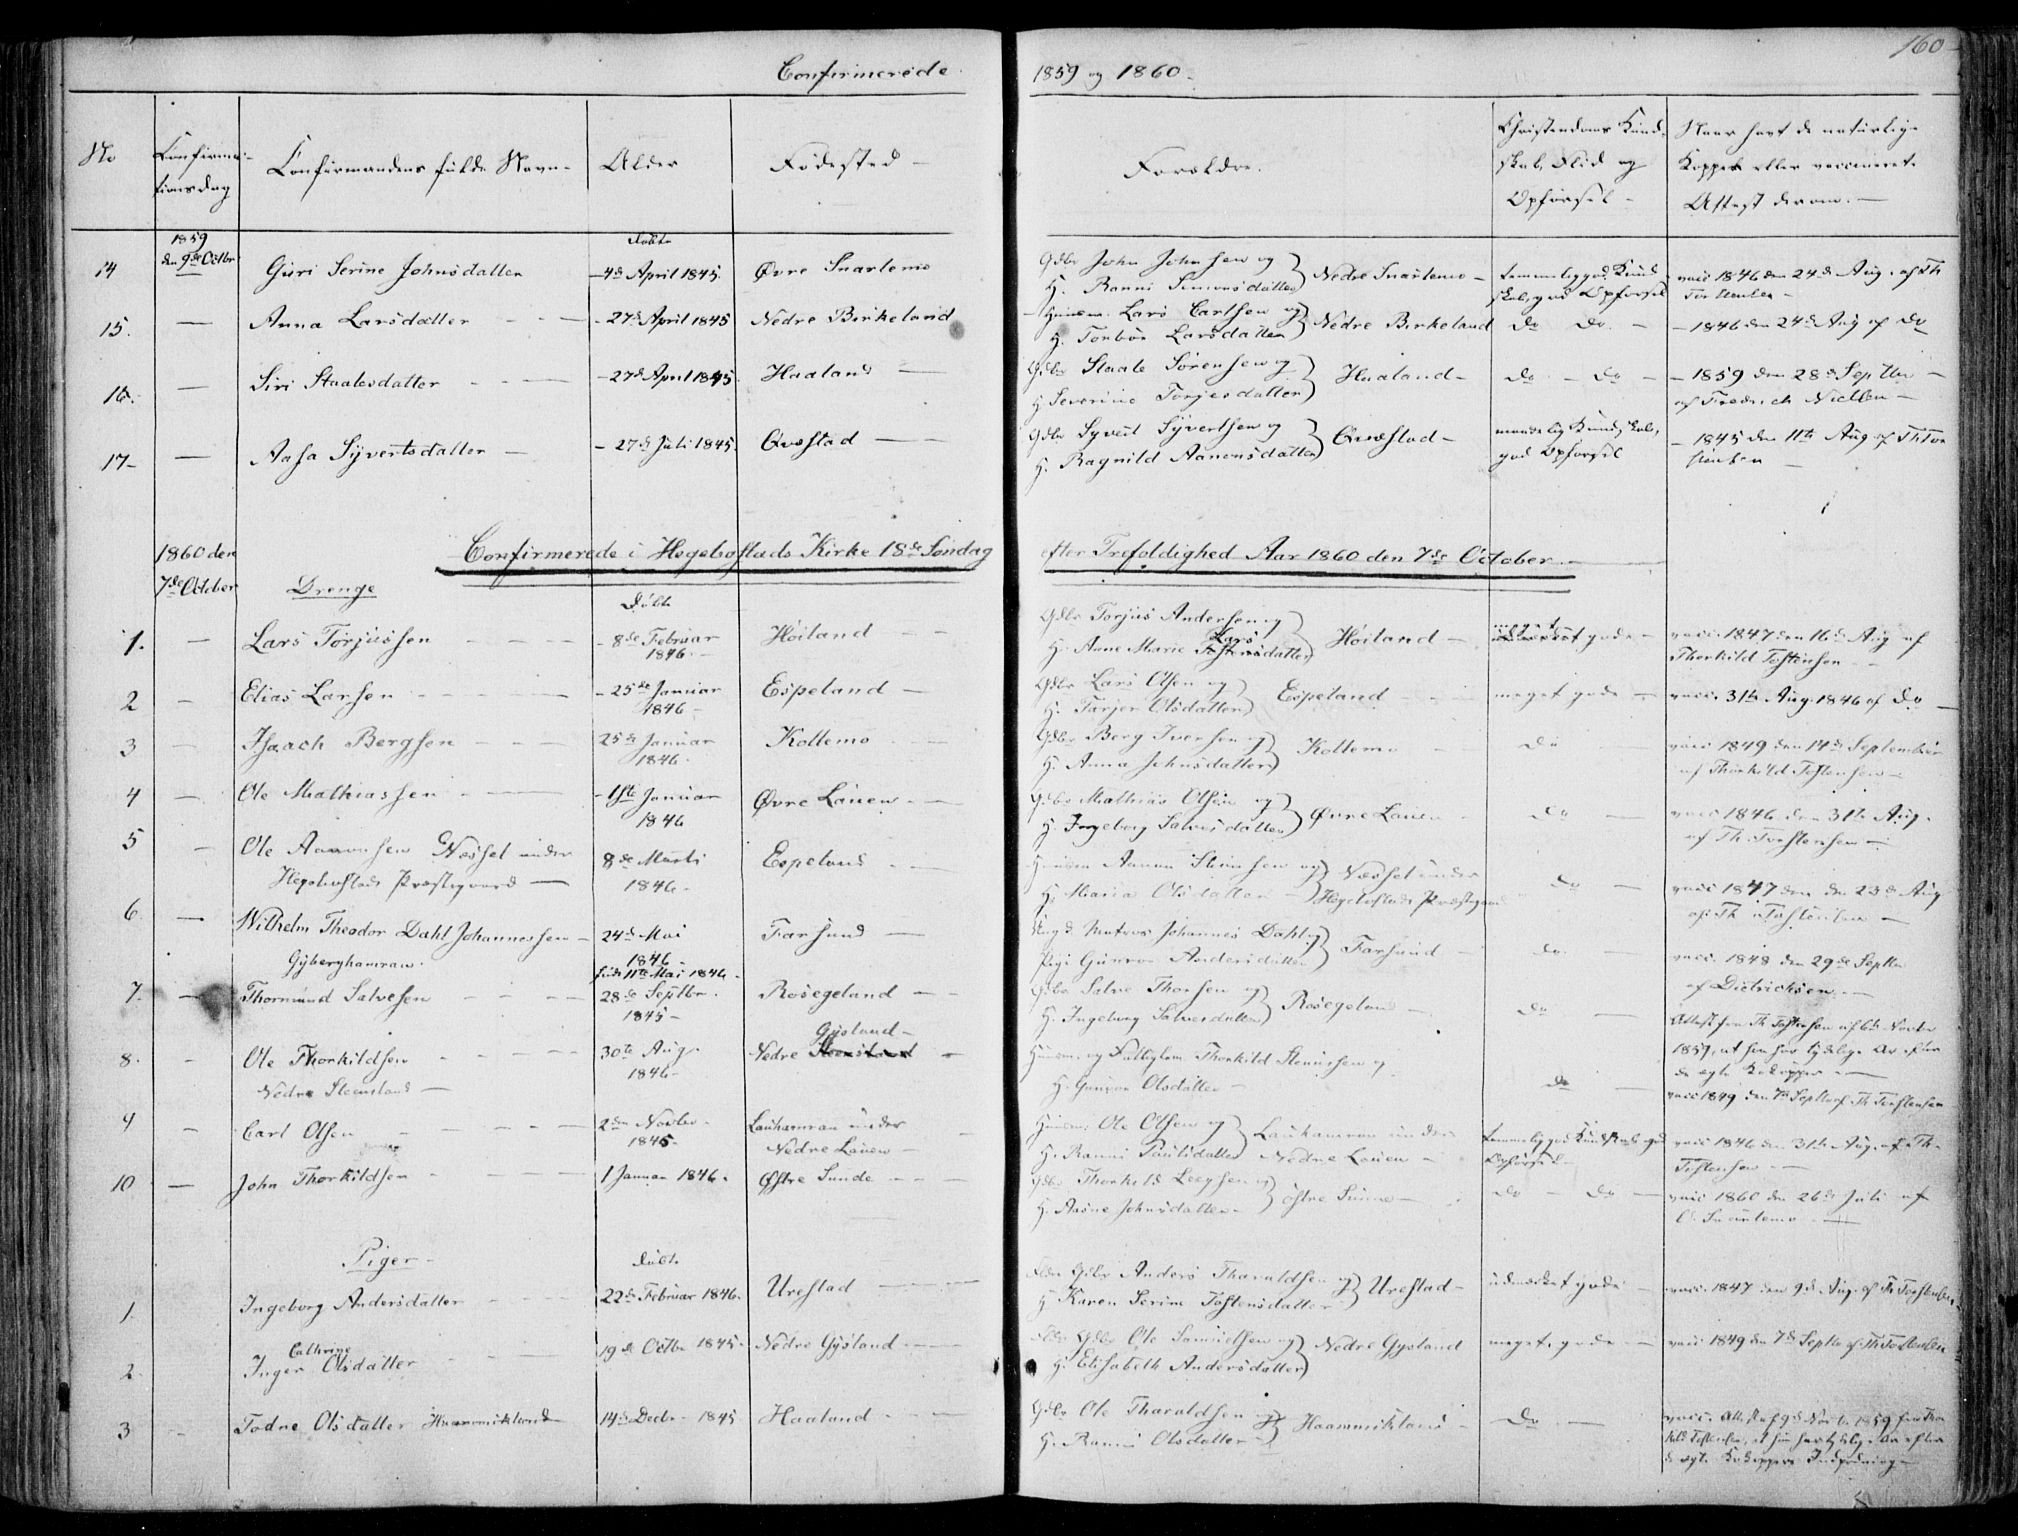 Confirmerede
1859 og 1860
160
No
Confirma-
tionsdag
Confirmandens fulde Navn
Alder
Fødested
Forældre
Christendoms Kund-
skab, Flid og
Opførsel
Naar havt de naturlige
Kopper eller vaccineret.
Attest derom.
14
1859
den 9de Octbr
Guri Serine Johnsdatter
Døbt
4de April 1845
Øvre Snartemo
Gdbr John Johnsen og
H. Ranni Simonsdatter
Nedre Snartemo
temmelig god Kund-
skab, god Opførsel
vacc 1846 den 24de Aug. af Th
Torstensen
15.
Anna Larsdatter
27de April 1845
Nedre Birkeland
Huusm. Lars Carlsen og
H. Torbør Larsdatter
Nedre Birkeland
Do Do
1846 den 24de Aug af Do
16.
Siri Staalesdatter
27de April 1845
Haaland
Gdbr Staale Sørensen og
H. Severine Torjesdatter
Haaland
Do - Do
1859 den 28de Septbr
af Fredrich Nielsen
17
Aasa Syvertsdatter
27de Juli 1845
Qvæstad
Gdbr Syvert Syvertsen og
H. Ragnild Aanonsdatter
Qvæstad
maadelig Kundskab,
god Opførsel
1845 den 11te Aug af Th Tor
stensen
1860 den
7de October
Confirmerede i Hegebostads Kirke 18de Søndag
efter Trefoldighed Aar 1860 den 7de October
Drenge
Døbt
1.
Lars Torjussen
8de Februar
1846
Høiland
Gdbr Torjus Andersen og
H. Anne Marie Lars
datter
Høiland
meget
gode
vacc. 1847 den 16de Aug af
Thorkild Tostensen
2
Elias Larsen
25de Januar
1846
Espeland
Gdbr Lars Olsen og
H. Tarjer Olsdatter
Espeland
meget gode
vacc. 31te Aug. 1846 af Do
3
Isaach Bergsen
25de Januar
1846
Kollemo
Gdbr Berg Iversen og
H. Anna Johnsdatter
Kollemo
Do
vacc 1849 den 14de September
af Thorkild Tostensen
4
Ole Mathiassen
1ste Januar
1846
Øvre Lauen
Gdbr Mathias Olsen og
H. Ingeborg Salvesdatter
Øvre Lauen
Do
vacc 1846 den 31te Aug.
af Th. Torstensen
5
Ole Aanonsen Næsset under
Hegebostads Præstegaard
8de Marts
1846
Espeland
Huusm Aanon Steensen og
H. Maria Olsdatter
Næsset under
Hegebostads Præstegaard
Do
vacc 1847 den 23de Aug
af Th Tostensen
6.
Wilhelm Theodor Dahl Johannessen
Gyberghamran
24de Mai
1846
født 11te Mai 1846
Farsund
Ung. Matros Johannes Dahl og
Pige Gunvor Andersdatter
Farsund
Do
vacc. 1848 den 29de Septbr
af Dietrichsen
7.
Thormund Salvesen
28de Septbr.
1845
Rosegeland
Gdbr Salve Thorsen og
H. Ingeborg Salvesdatter
Rosegeland
Do
Attest fra Th Tostensen af 6te Novbr
1859, at han har tydelige Ar efter
de ægte Kokopper
8.
Ole Thorkildsen
Nedre Steensland
30te Aug
1846
Gysland
Nedre
Huusm. og Fattiglem Thorkild Steensen og
H. Gunvor Olsdatter
Do
vacc 1849 den 7de Septbr af Th Torstensen
9
Carl Olsen
2den Novbr
1845
Lauhamran under
Nedre Lauen
Huusm. Ole Olsen og
H. Ranni Poulsdatter
Lauhamran under
Nedre Lauen
temmelig god Kundskab god
Opførsel
vacc 1846 den 31te Aug. af Th.
Tostensen
10
John Thorkildsen
1 Januar 1846
Østre Sunde
Gdbr Thorkild Leegsen og
H. Aasne Johnsdatter
østre Sunde
Do - Do
vacc 1860 den 26de Juli af
O. Snartemo
Piger
Døbt
1.
Ingeborg Andersdatter
22de Februar 1846
Urestad
Gdbr Anders Tharaldsen og
H Karen Serine Tostensdatter
Urestad
udmærket gode
vacc. 1847 den 9de Aug. af Th Torstensen
2.
Cathrine
Inger Olsdatter
19de Octbr 1845
Nedre Gysland
Gdbr Ole Samuelsen og
H. Elisabeth Andersdatter
Nedre Gysland
meget gode
vacc 1849 den 7de Septbr af Th Torstensen
3
Todne Olsdatter Haammikland
14de Decbr 1845
Haaland
Gdbr Ole Tharaldsen
H. Ranni Olsdatter
Haammikland
Do
vacc. Attest af 9de Novbr 1859 fra Thor
kild Tostensen, at hun har tydelige Ar efter
de ægte Kokoppers Indpodning